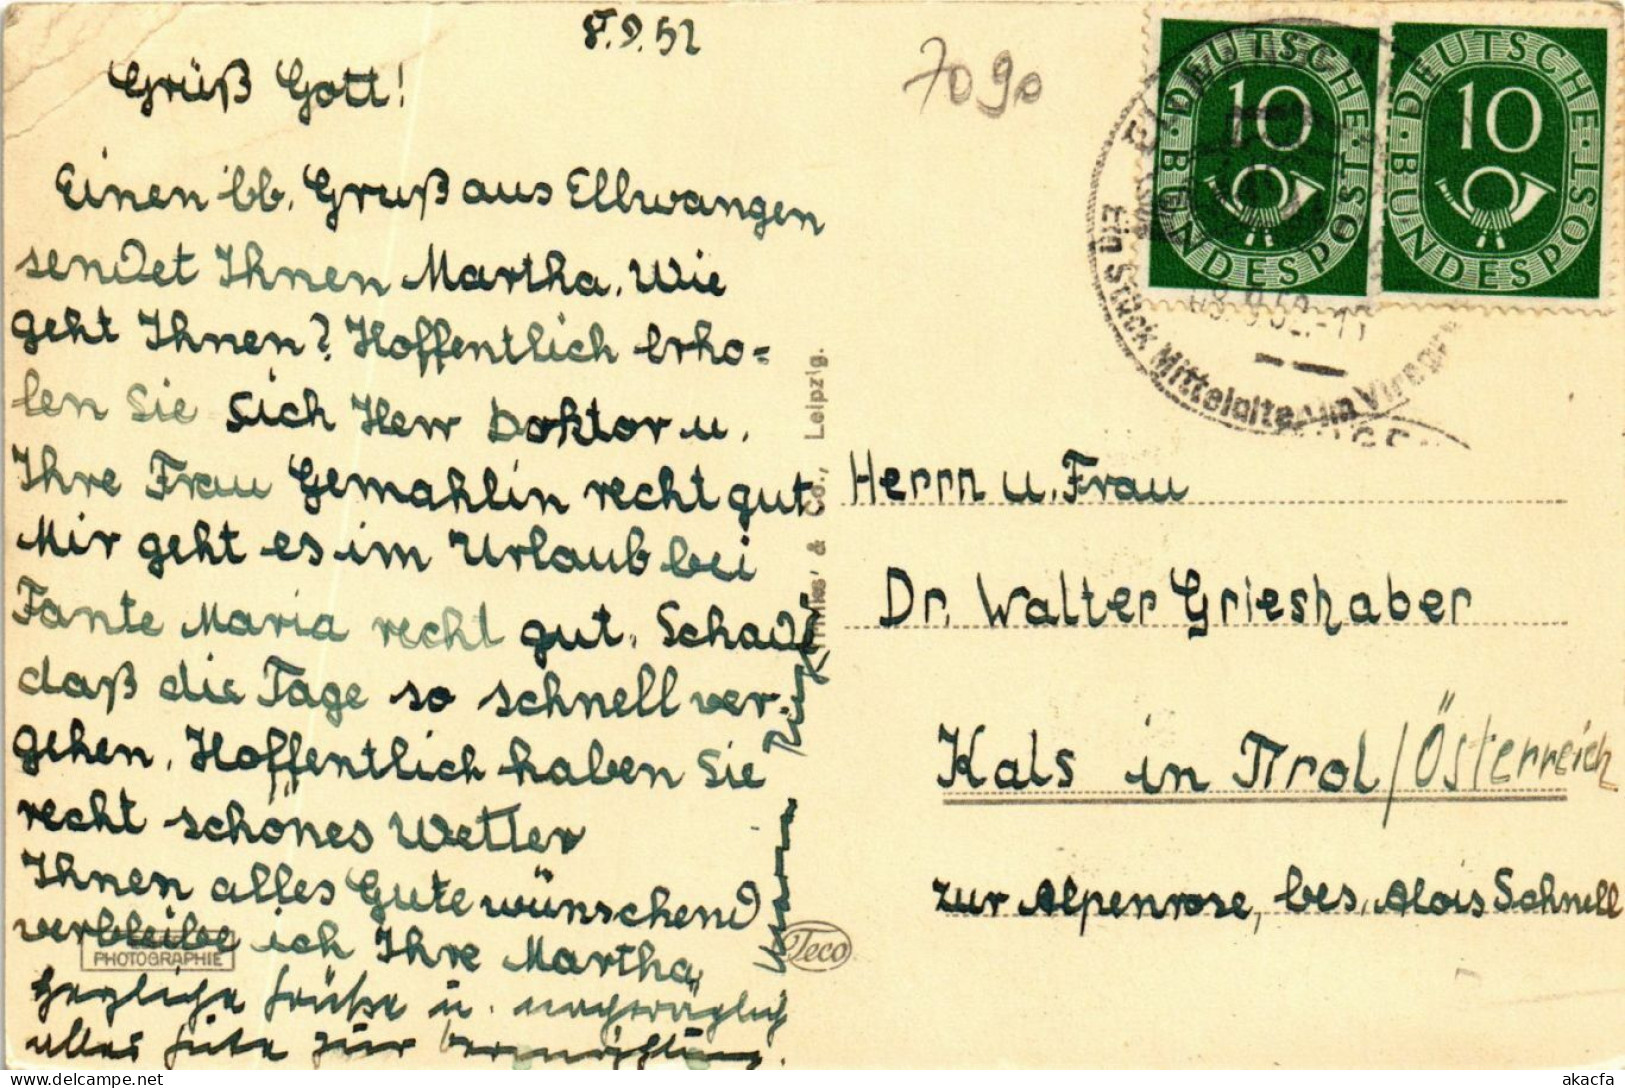 8.9.52
Grüß Gott!
Einen lb. Gruß aus Ellwangen
sendet Ihnen Martha. Wie
geht Ihnen? Hoffentlich erho=
len Sie sich Herr Doktor u.
Ihre Frau Gemahlin recht gut
Mir geht es im Urlaub bei
Tante Maria recht gut. Schade
daß die Tage so schnell ver-
gehen. Hoffentlich haben Sie
recht schönes Wetter
Ihnen alles Gute wünschend
verbleibe ich Ihre Martha
Herzliche Grüße u. nachträglich
alles Gute zur Vermählung.
PHOTOGRAPHIE
& Co., Leipzig.
Teco
7090
DEUTSCHE BUNDESPOST
10
DEUTSCHE BUNDESPOST
10
Ein Stück Mittelalter im
Herrn u. Frau
Dr. Walter Grieshaber
Kals in Tirol / Österreich
zur Alpenrose, bes. Alois Schnell
akacfa